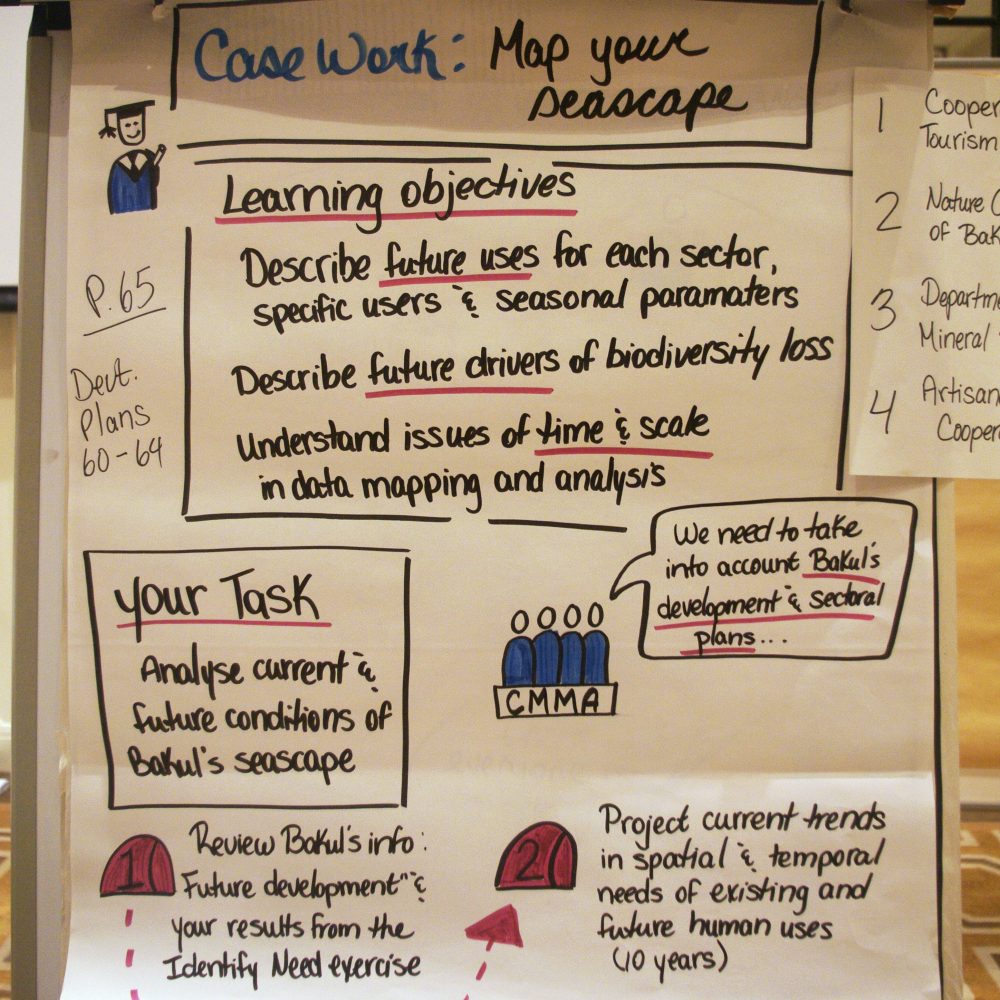 Case Work: Map your
seascape
Learning objectives
Describe future uses for each sector,
specific users & seasonal paramaters
Describe future drivers of biodiversity loss
Understand issues of time & scale
in data mapping and analysis
P. 65
Devt.
Plans
60-64
We need to take
into account Bakul's
development & sectoral
plans...
CMMA
Your Task
Analyse current &
future conditions of
Bakul's seascape
1
Review Bakul's info:
Future development &
your results from the
Identify Need exercise
2
Project current trends
in spatial & temporal
needs of existing and
future human uses
(10 years)
1 Cooper
Tourism
2 Nature C
of Bak
3 Departme
Mineral
4 Artisan
Cooper